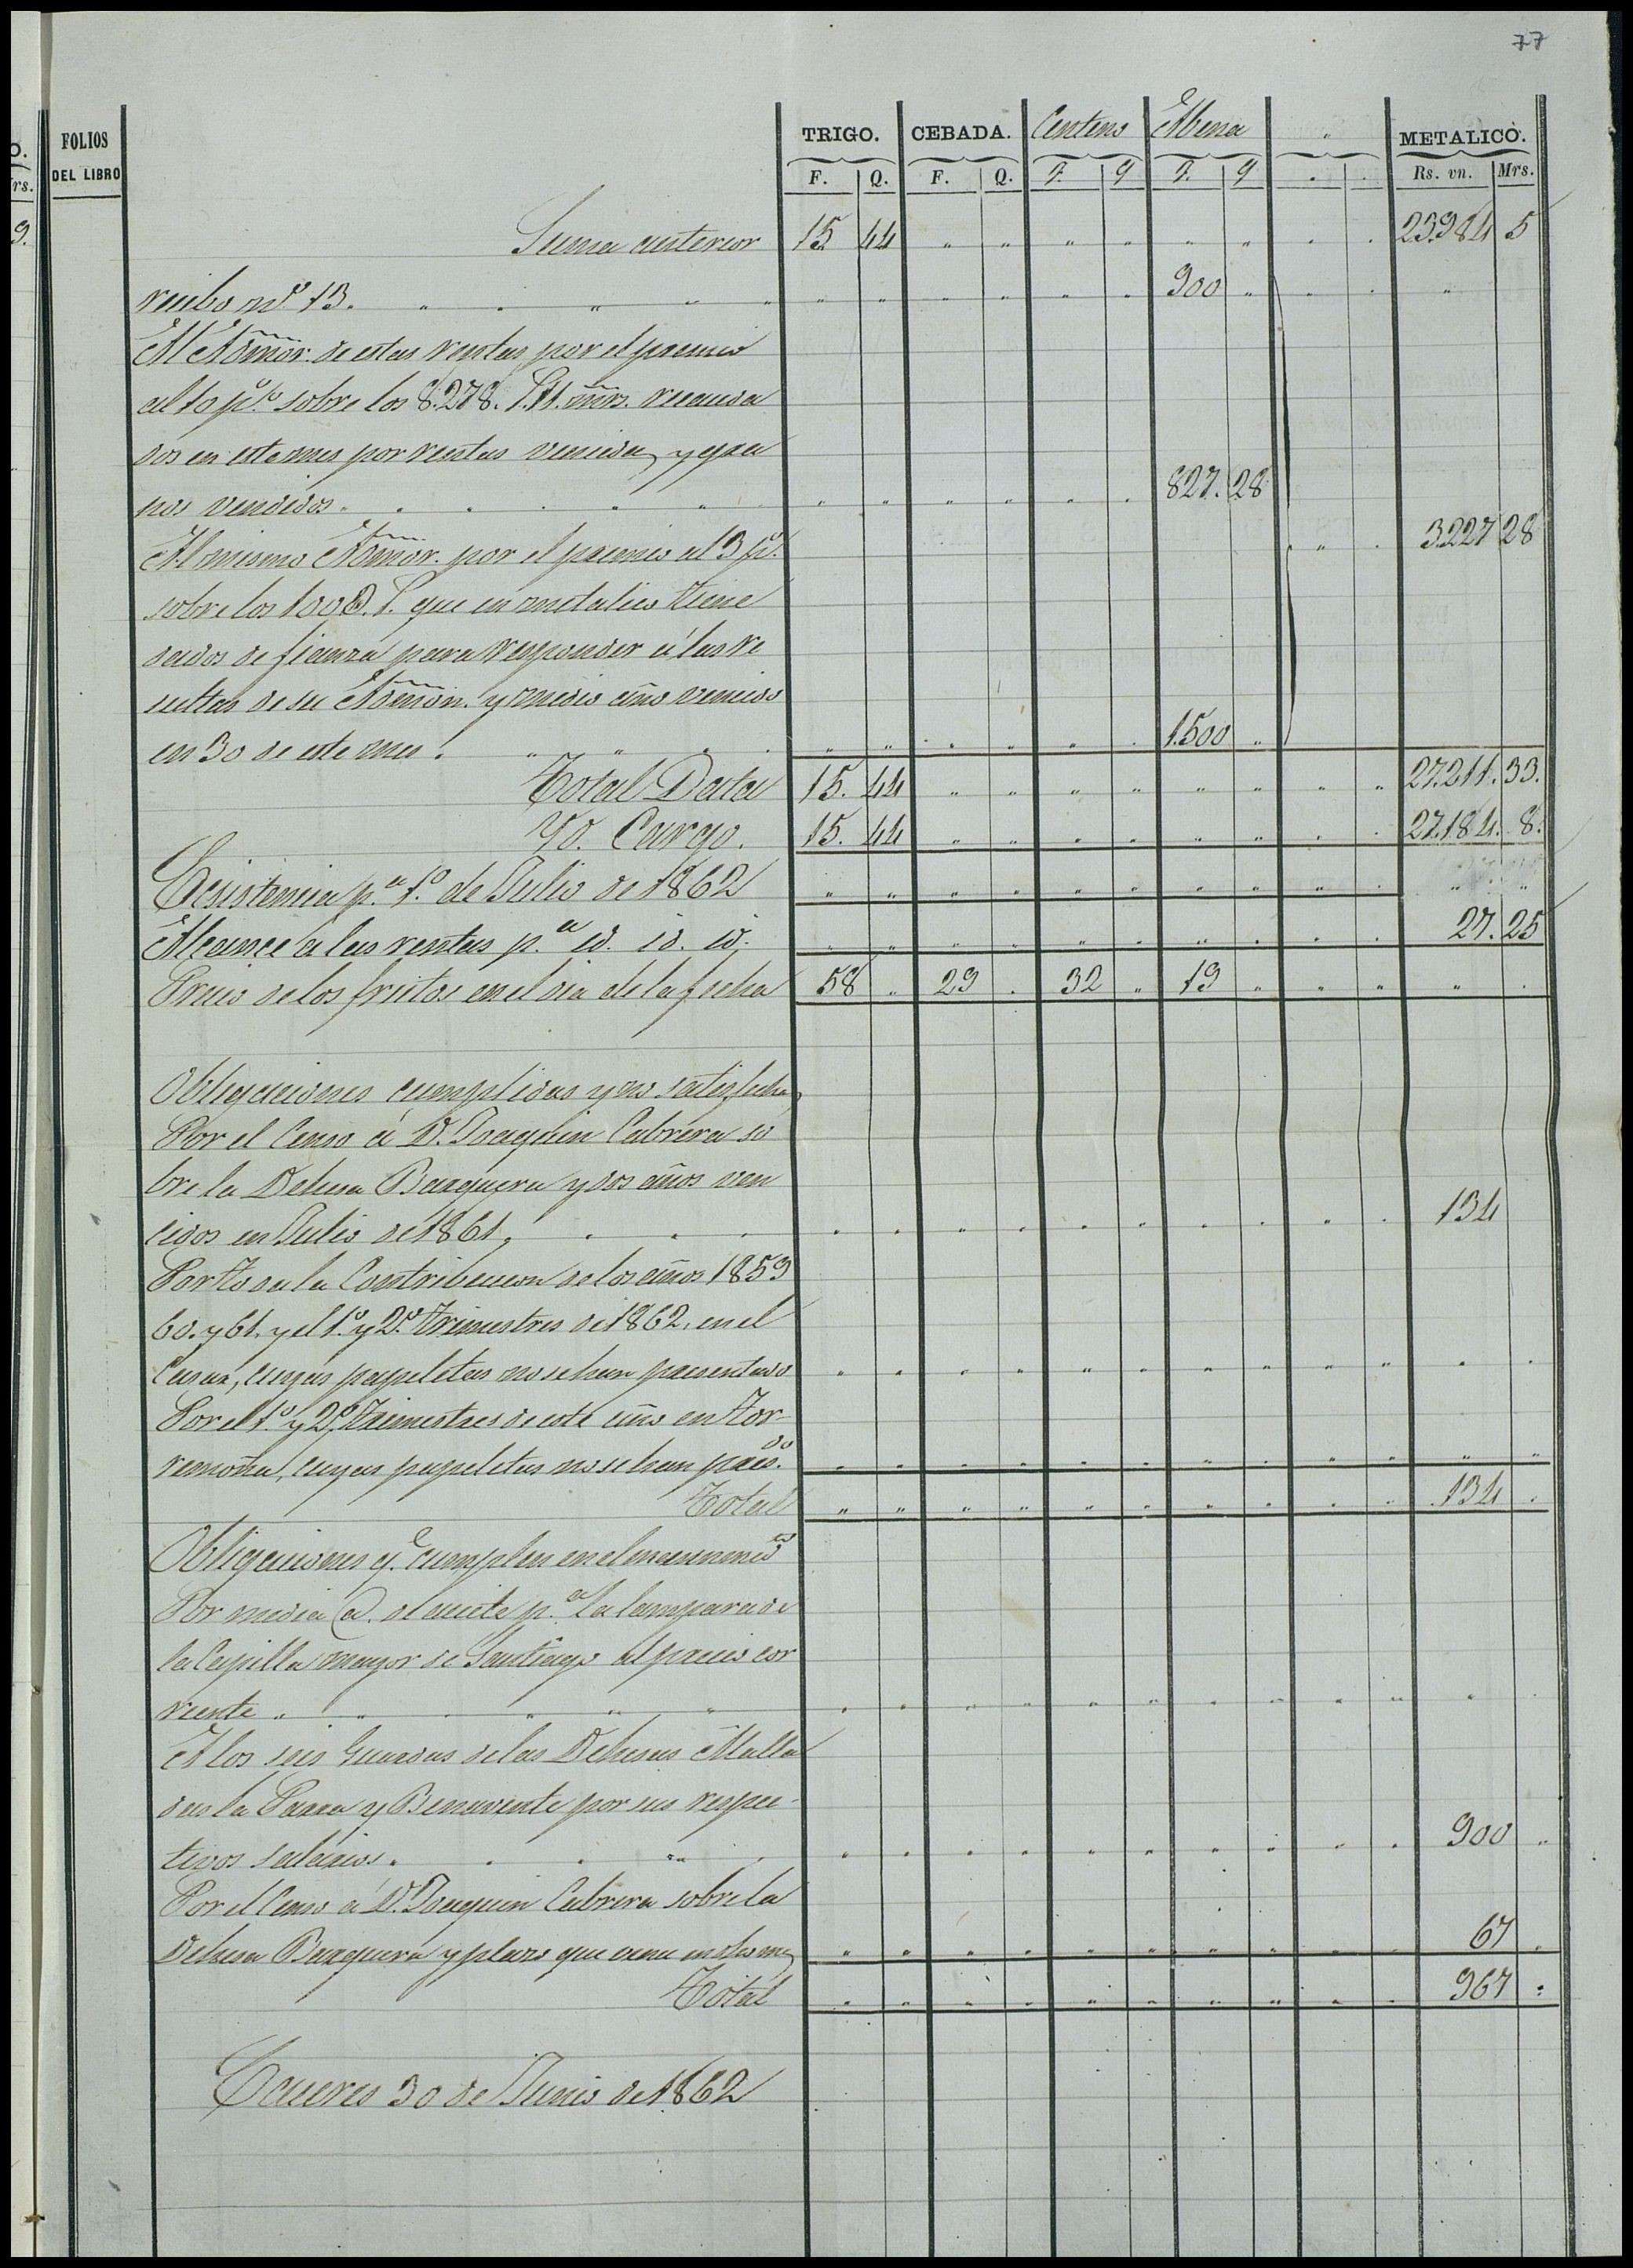 77
FOLIOS DEL LIBRO
TRIGO. CEBADA. Centeno Abena " METALICO.
F. Q. F. Q. F. Q F. Q . . Rs. vn. Mrs.
Suma anterior 15 44 " " " " " " . . 23.984 5
recibo nº 13. " " " " " " 900 " . . "
Al Admor. de estas rentas por el premio
al 10 p.% sobre los 8.278. 11. mrs. recauda
dos en este mes por rentas vencidas y gra
nos vendidos. " " " " " . 827. 28
Al mismo Admor. por el premio al 3 p. " . 3.227 28
sobre los 100 que en metalico tiene
dados de fianza para responder á las re
sultas de su Admon. y medio año vencido
en 30 de este mes. " " " " " . 1.500 "
Total Data 15. 44 " " " " " " " " 27.211. 33.
Yd. Cargo. 15. 44 " " " " " " . . 27.184. 8.
Ecsistencia p.ª 1.º de Julio de 1862 " " " " " " " " " . " "
Alcance a las rentas p.ª id. id. id. " " " " " " " . . . 27. 25
Precio de los frutos en el dia de la fecha 58 " 29 . 32 " 19 " " " " .
Obligaciones cumplidas y no satisfechas
Por el Censo á D. Joaquin Cabrera so
bre la Dehesa Barquera y dos años ven
cidos en Julio de 1861. . . . " . " . . . " . 134
Por la Contribucion de los años 1859
60. y 61. y el 1.º y 2.º trimestres de 1862. en el
Casar, cuyas papeletas no se han presentado " " " " " " " " " " " "
Por el 1.º y 2.º trimestres de este año en Tor-
remocha, cuyas papeletas no se han preśdo. " " " " " " " " " " " "
Total " " " " " " " . . . 134 .
Obligaciones q.e cumplen en el mes inmedto
Por media @. de aceite p.ª la lampara de
la Capilla mayor de Santiago al precio cor
riente " " " " " " " " " " " " .
A los seis Guardas de las Dehesas Malla
das la Parra y Benavente por sus respec-
tivos salarios. " . " " " " " " . . 900 "
Por el Censo á D. Joaquin Cabrera sobre la
Dehesa Barquera y plazo que vence en dho mes " " " " " " " " . . 67 .
Total " " " " " " " " . . 967 "
Caceres 30 de Junio de 1862